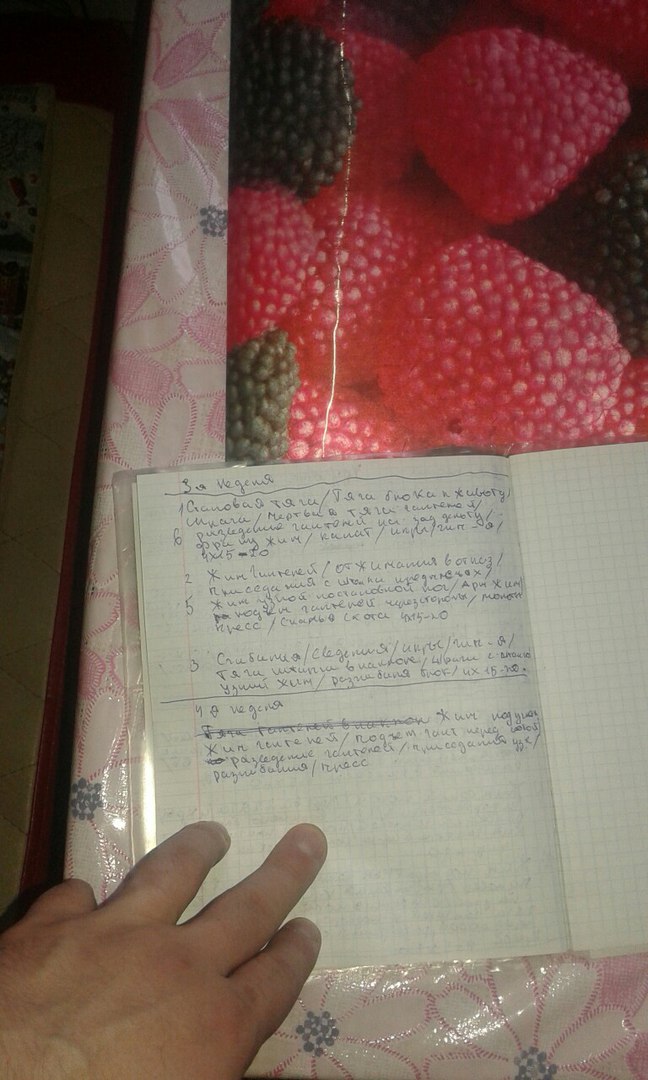 3я неделя
1 Становая тяга / Тяга блока к животу /
шраги / мертвая тяга гантелей /
6 разведение гантелей на зад дельту /
франц жим / канат / икры / гип-я /
4х15-20
2 Жим гантелей / отжимания в отказ /
приседания с
5 Жим узкой постановкой ног / Арн жим
подъем гантелей через стороны /
пресс / скамья Скота 4х15-20
3 Сгибания / сведения / икры / гип-я /
Тяга штанги в наклоне / шраги с
узкий жим / разгибания блок / 4х15-20.
4я неделя
Тяга гантелей в наклон Жим
Жим гантелей / подъем гант перед собой
разведение гантелей / приседания узк /
разгибания / пресс